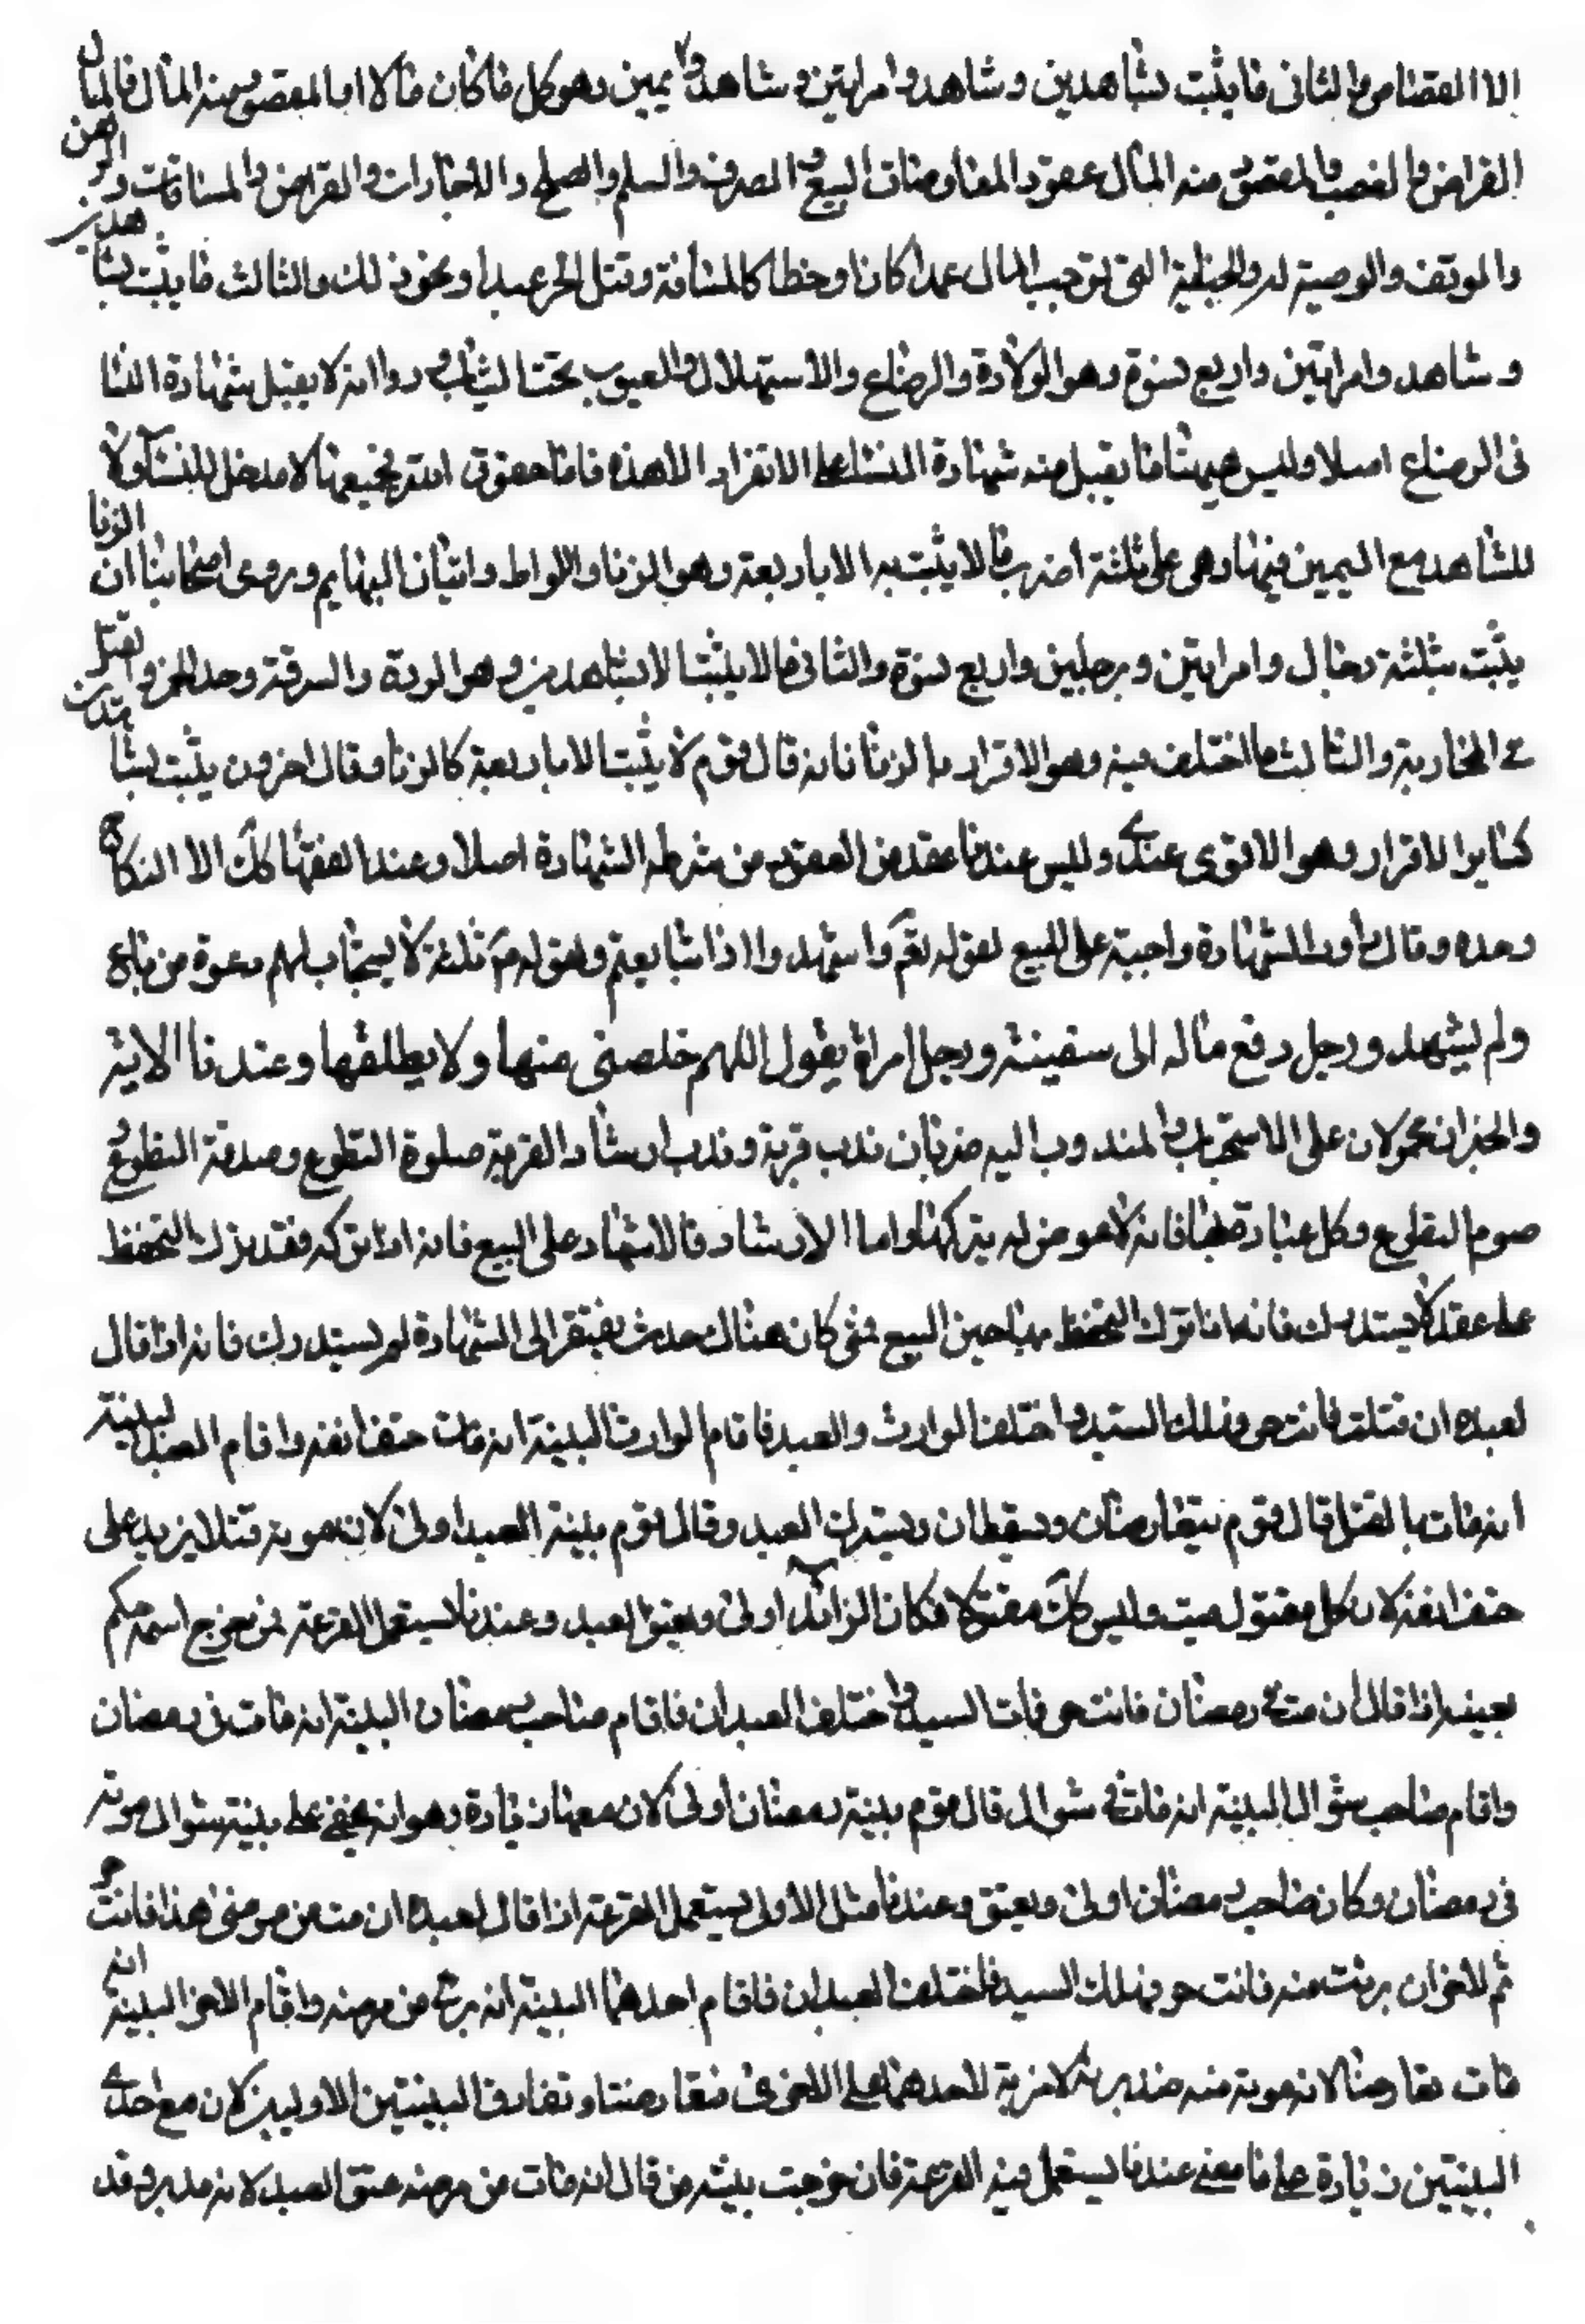 الا القصاص والثانى ما يثبت بشاهدين وشاهد وامراتين وشاهد ويمين وهو كل ما كان مالا او المقصود منه المال فالمال
القراض والغصب والمقصود منه المال عقود المعاوضات البيع والصرف والسلم والصلح والاجارات والقراض والمساقات والرهن
والوقف والوصية له والجناية التى توجب المال عمدا كان او خطا كالمنافة وقتل الحر عبدا ونحو ذلك والثالث ما يثبت بشاهدين
وشاهد وامراتين واربع نسوة وهو الولادة والرضاع والاستهلال والعيوب تحت الثياب وروا انه لا يقبل شهادة النسا
فى الرضاع اصلا وليس هيهنا ما يقبل منه شهادة النسا على الانفراد الا هذه فاما حقوق الله فجميعها لا مدخل للنسآء ولا
للشاهد مع اليمين فيها وهى على ثلثة اضرب ما لا يثبت به الا باربعة وهو الزنا واللواط واتيان البهايم وروى اصحابنا ان الزنا
يثبت بثلثة رجال وامراتين وبرجلين واربع نسوة والثانى ما لا يثبت الا بشاهدين وهو الردة والسرقة وحد الخمر والقتل
فى المحاربة والثالث ما اختلف فيه وهو الاقرار بالزنا فانه قال قوم لا يثبت الا باربعة كالزنا وقال اخرون يثبت بشاهدين
كساير الاقرار وهو الاقوى عندى وليس عندنا عقد من العقود من شرطه الشهادة اصلا وعند الفقها كك الا النكاح
وحده وقال داود الشهادة واجبة على البيع لقوله تعم واشهدوا اذا تبايعتم ولقوله عم ثلثة لا يستجاب لهم دعوة من باع
ولم يشهد ورجل دفع ماله الى سفينة ورجل امراة يقول اللهم خلصنى منها ولا يطلقها وعندنا الاية
والخبران محمولان على الاستحباب والمندوب اليه ضربان ندب قربة وندب ارشاد القربة صلوة التطوع وصدقة التطوع و
صوم التطوع وكل عبادة تطوعا فانه لا عوض له يتركها واما الارشاد فالاشهاد على البيع فانه اذا تركه فقد ترك التحفظ
على عقد لا يستدرك فانه اذا ترك التحفظ بها حين البيع فمتى كان هناك حدث يفتقر الى الشهادة لم يستدرك فانه اذا قال
لعبده ان قتلت فانت حر فهلك السيد واختلف الوارث والعبد فاقام الوارث البينة انه مات حتف انفه واقام العبد البينة
انه مات بالقتل قال قوم تتعارضان ويسقطان ويسترق العبد وقال قوم بينة العبد اولى لان موته قتلا يزيد على
حتف انفه لان كل مقتول ميت وليس كل ميت مقتولا فكان الزائد اولى ويعتق العبد وعندنا يستعمل القرعة فمن خرج اسمه حكم
بعينه اذا قال ان مت فى رمضان فانت حر فمات السيد واختلف العبدان فاقام صاحب رمضان البينة انه مات فى رمضان
واقام صاحب شوال البينة انه مات فى شوال قال قوم بينة رمضان اولى لان معها زيادة وهو انه يخفى على بينة شوال موته
فى رمضان وكان صاحب رمضان اولى ويعتق وعندنا مثل الاول يستعمل القرعة اذا قال لعبده ان مت من مرضى هذا فانت حر
ثم للاخر ان برئت منه فانت حر فهلك السيد فاختلف العبدان فاقام احدهما البينة انه برئ من مرضه واقام الاخر البينة انه
مات تعارضتا لان موته منه ضد برئه لا مزية لاحدهما على الاخرى فتعارضتا وتفارق البينتين الاوليين لان مع احدى
البينتين زيادة على ما مضى عندنا يستعمل فيه القرعة فان خرجت بينة من قال انه مات من مرضه عتق العبد لانه مدبر وقد